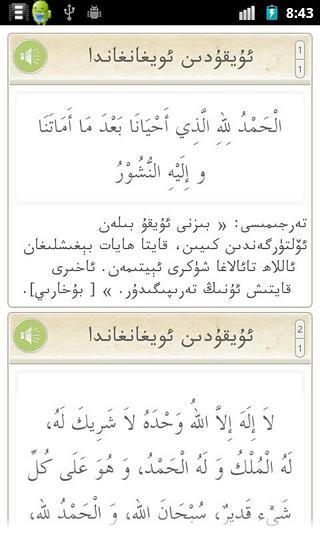 8:43
ئۇيقۇدىن ئويغانغاندا
1
1
الْحَمْدُ لِلهِ الَّذِي أَحْيَانَا بَعْدَ مَا أَمَاتَنَا
و إِلَيْهِ النُّشُوْرُ
تەرجىمىسى: « بىزنى ئۇيقۇ بىلەن
ئۆلتۈرگەندىن كىيىن، قايتا ھايات بېغىشلىغان
ئاللاھ تائالاغا شۈكرى ئېيتىمەن. ئاخىرى
قايتىش ئۇنىڭ تەرىپىگىدۇر. » [ بۇخارىي].
ئۇيقۇدىن ئويغانغاندا
2
1
لاَ إِلَهَ إِلاَّ اللهُ وَحْدَهُ لاَ شَرِيكَ لَهُ،
لَهُ الْمُلْكُ وَ لَهُ الْحَمْدُ، وَ هُوَ عَلَى كُلِّ
شَيْءٍ قَدِيرٌ، سُبْحَانَ اللهِ، وَ الْحَمْدُ لِلهِ،